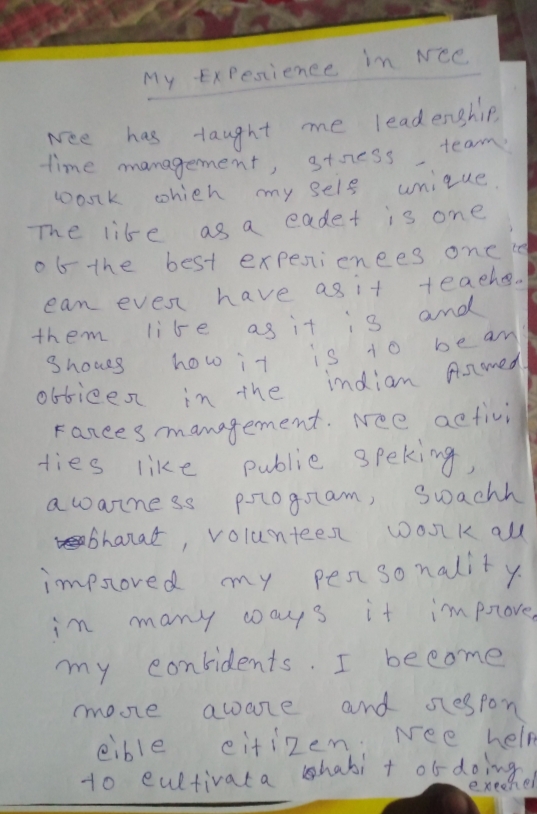 My Experience in Ncc
Ncc has taught me leadership,
time management, stress - team
work which my self unique.
The life as a cadet is one
of the best experiences one
can ever have as it teache
them life as it is and
Shows how it is to be an
officer in the indian Armed
Farces management. Ncc activi
ties like public speking,
awarness program, Swachh
bharat, volunteer work all
improved my personality.
in many ways it improve
my confidents. I become
more aware and respon
cible citizen. Ncc help
to cultivata habit of doing